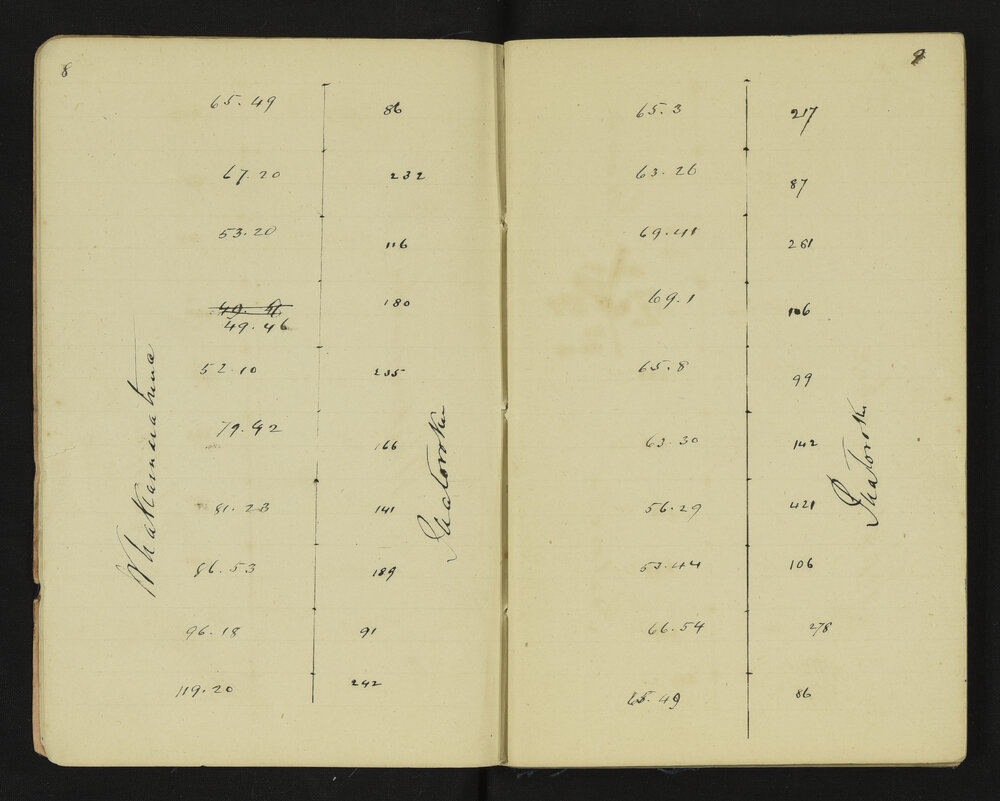 8
65.49 86
67.20 232
53.20 116
180
49.46
52.10 235
79.42 166
81.23 141
86.53 189
96.18 91
119.20 242
9
65.3 217
63.26 87
69.41 261
69.1 106
65.8 99
63.30 142
56.29 421
53.44 106
66.54 278
65.49 86